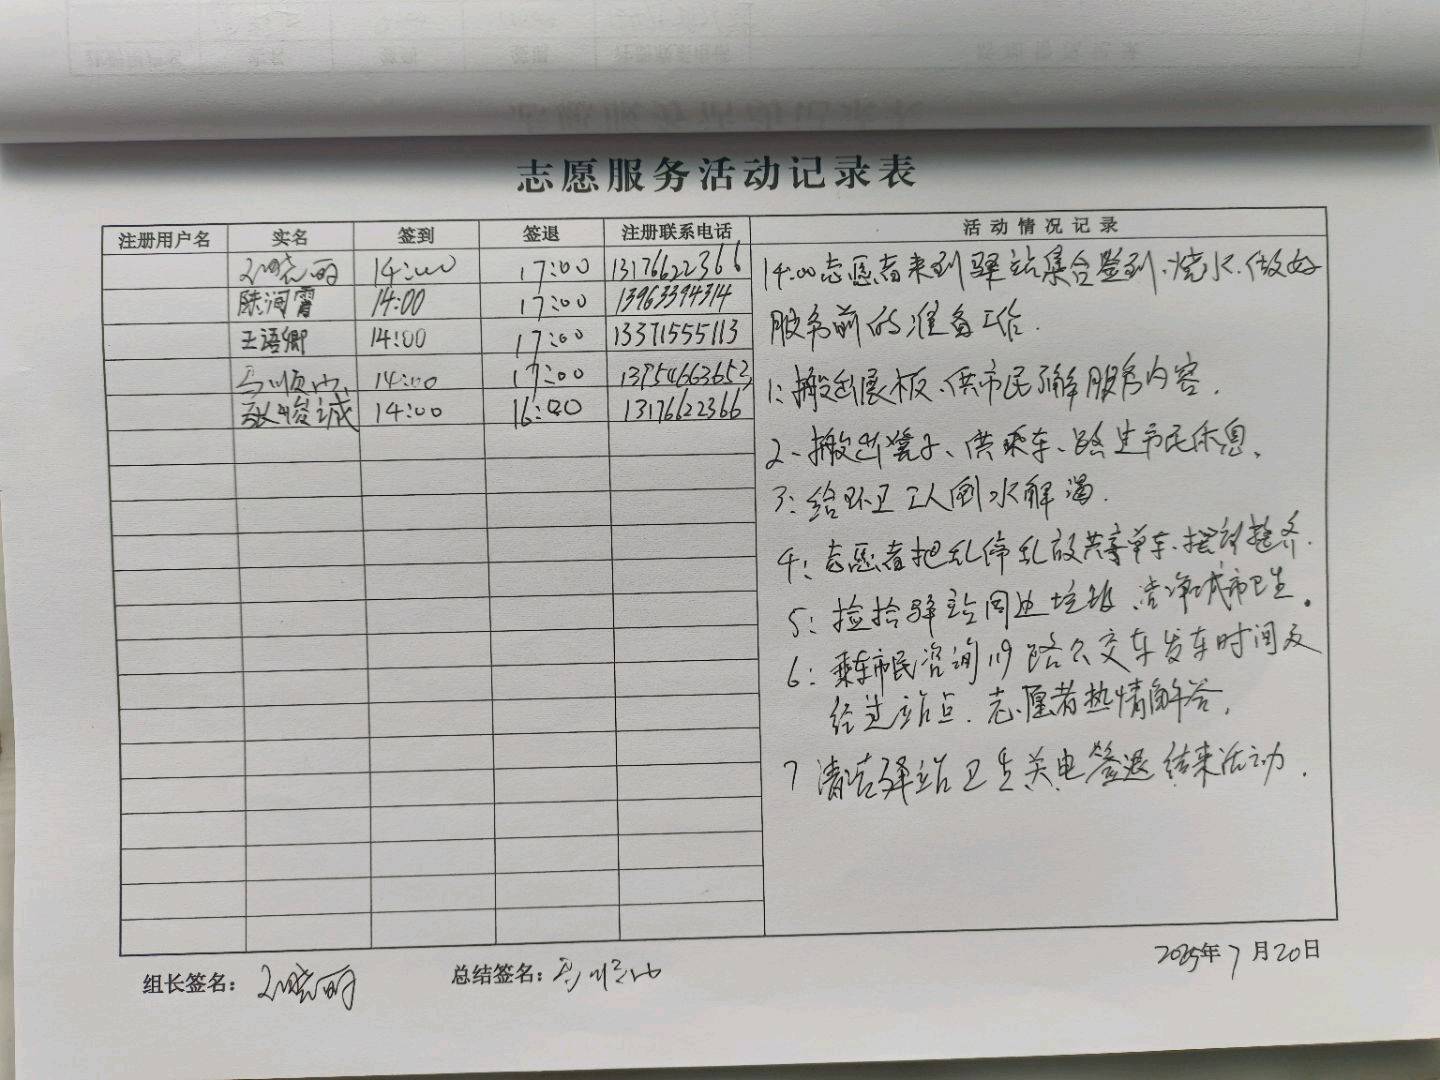 志愿服务活动记录表
注册用户名 实名 签到 签退 注册联系电话 活动情况记录
刘晓丽 14:00 17:00 13176622366
陈润霄 14:00 17:00 13963394314
王语卿 14:00 17:00 13371555113
马顺 14:00 17:00 13754663652
张峻诚 14:00 16:00 13176622366
14:00志愿者来到驿站集合签到、烧水、做好
服务前的准备工作.
1:搬出展板、供市民了解服务内容.
2、搬出凳子、供乘车、路过市民休息.
3:给环卫工人倒水解渴.
4:志愿者把乱停乱放共享单车、摆放整齐.
5:捡拾驿站周边垃圾、洁净城市卫生.
6:乘车市民咨询119路公交车发车时间及
经过站点.志愿者热情解答.
7清洁驿站卫生关电签退结束活动.
2025年7月20日
组长签名:刘晓丽 总结签名:马顺